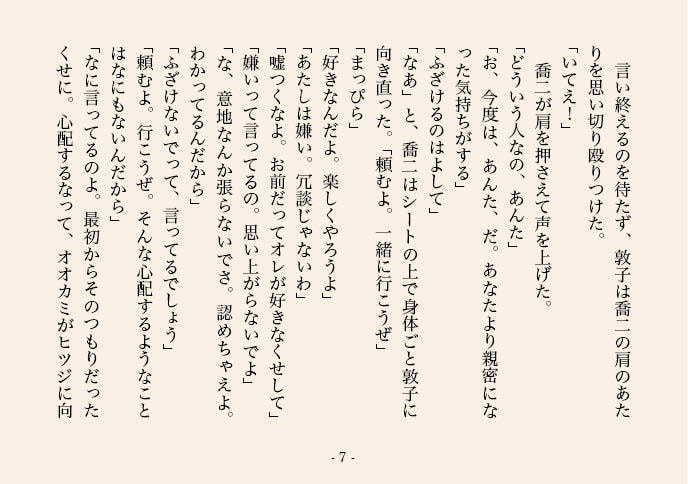 言い終えるのを待たず、敦子は喬二の肩のあた
りを思い切り殴りつけた。
「いてえ！」
　喬二が肩を押さえて声を上げた。
「どういう人なの、あんた」
「お、今度は、あんた、だ。あなたより親密にな
った気持ちがする」
「ふざけるのはよして」
「なあ」と、喬二はシートの上で身体ごと敦子に
向き直った。「頼むよ。一緒に行こうぜ」
「まっぴら」
「好きなんだよ。楽しくやろうよ」
「あたしは嫌い。冗談じゃないわ」
「嘘つくなよ。お前だってオレが好きなくせして」
「嫌いって言ってるの。思い上がらないでよ」
「な、意地なんか張らないでさ。認めちゃえよ。
わかってるんだから」
「ふざけないでって、言ってるでしょう」
「頼むよ。行こうぜ。そんな心配するようなこと
はなにもないんだから」
「なに言ってるのよ。最初からそのつもりだった
くせに。心配するなって、オオカミがヒツジに向
- 7 -